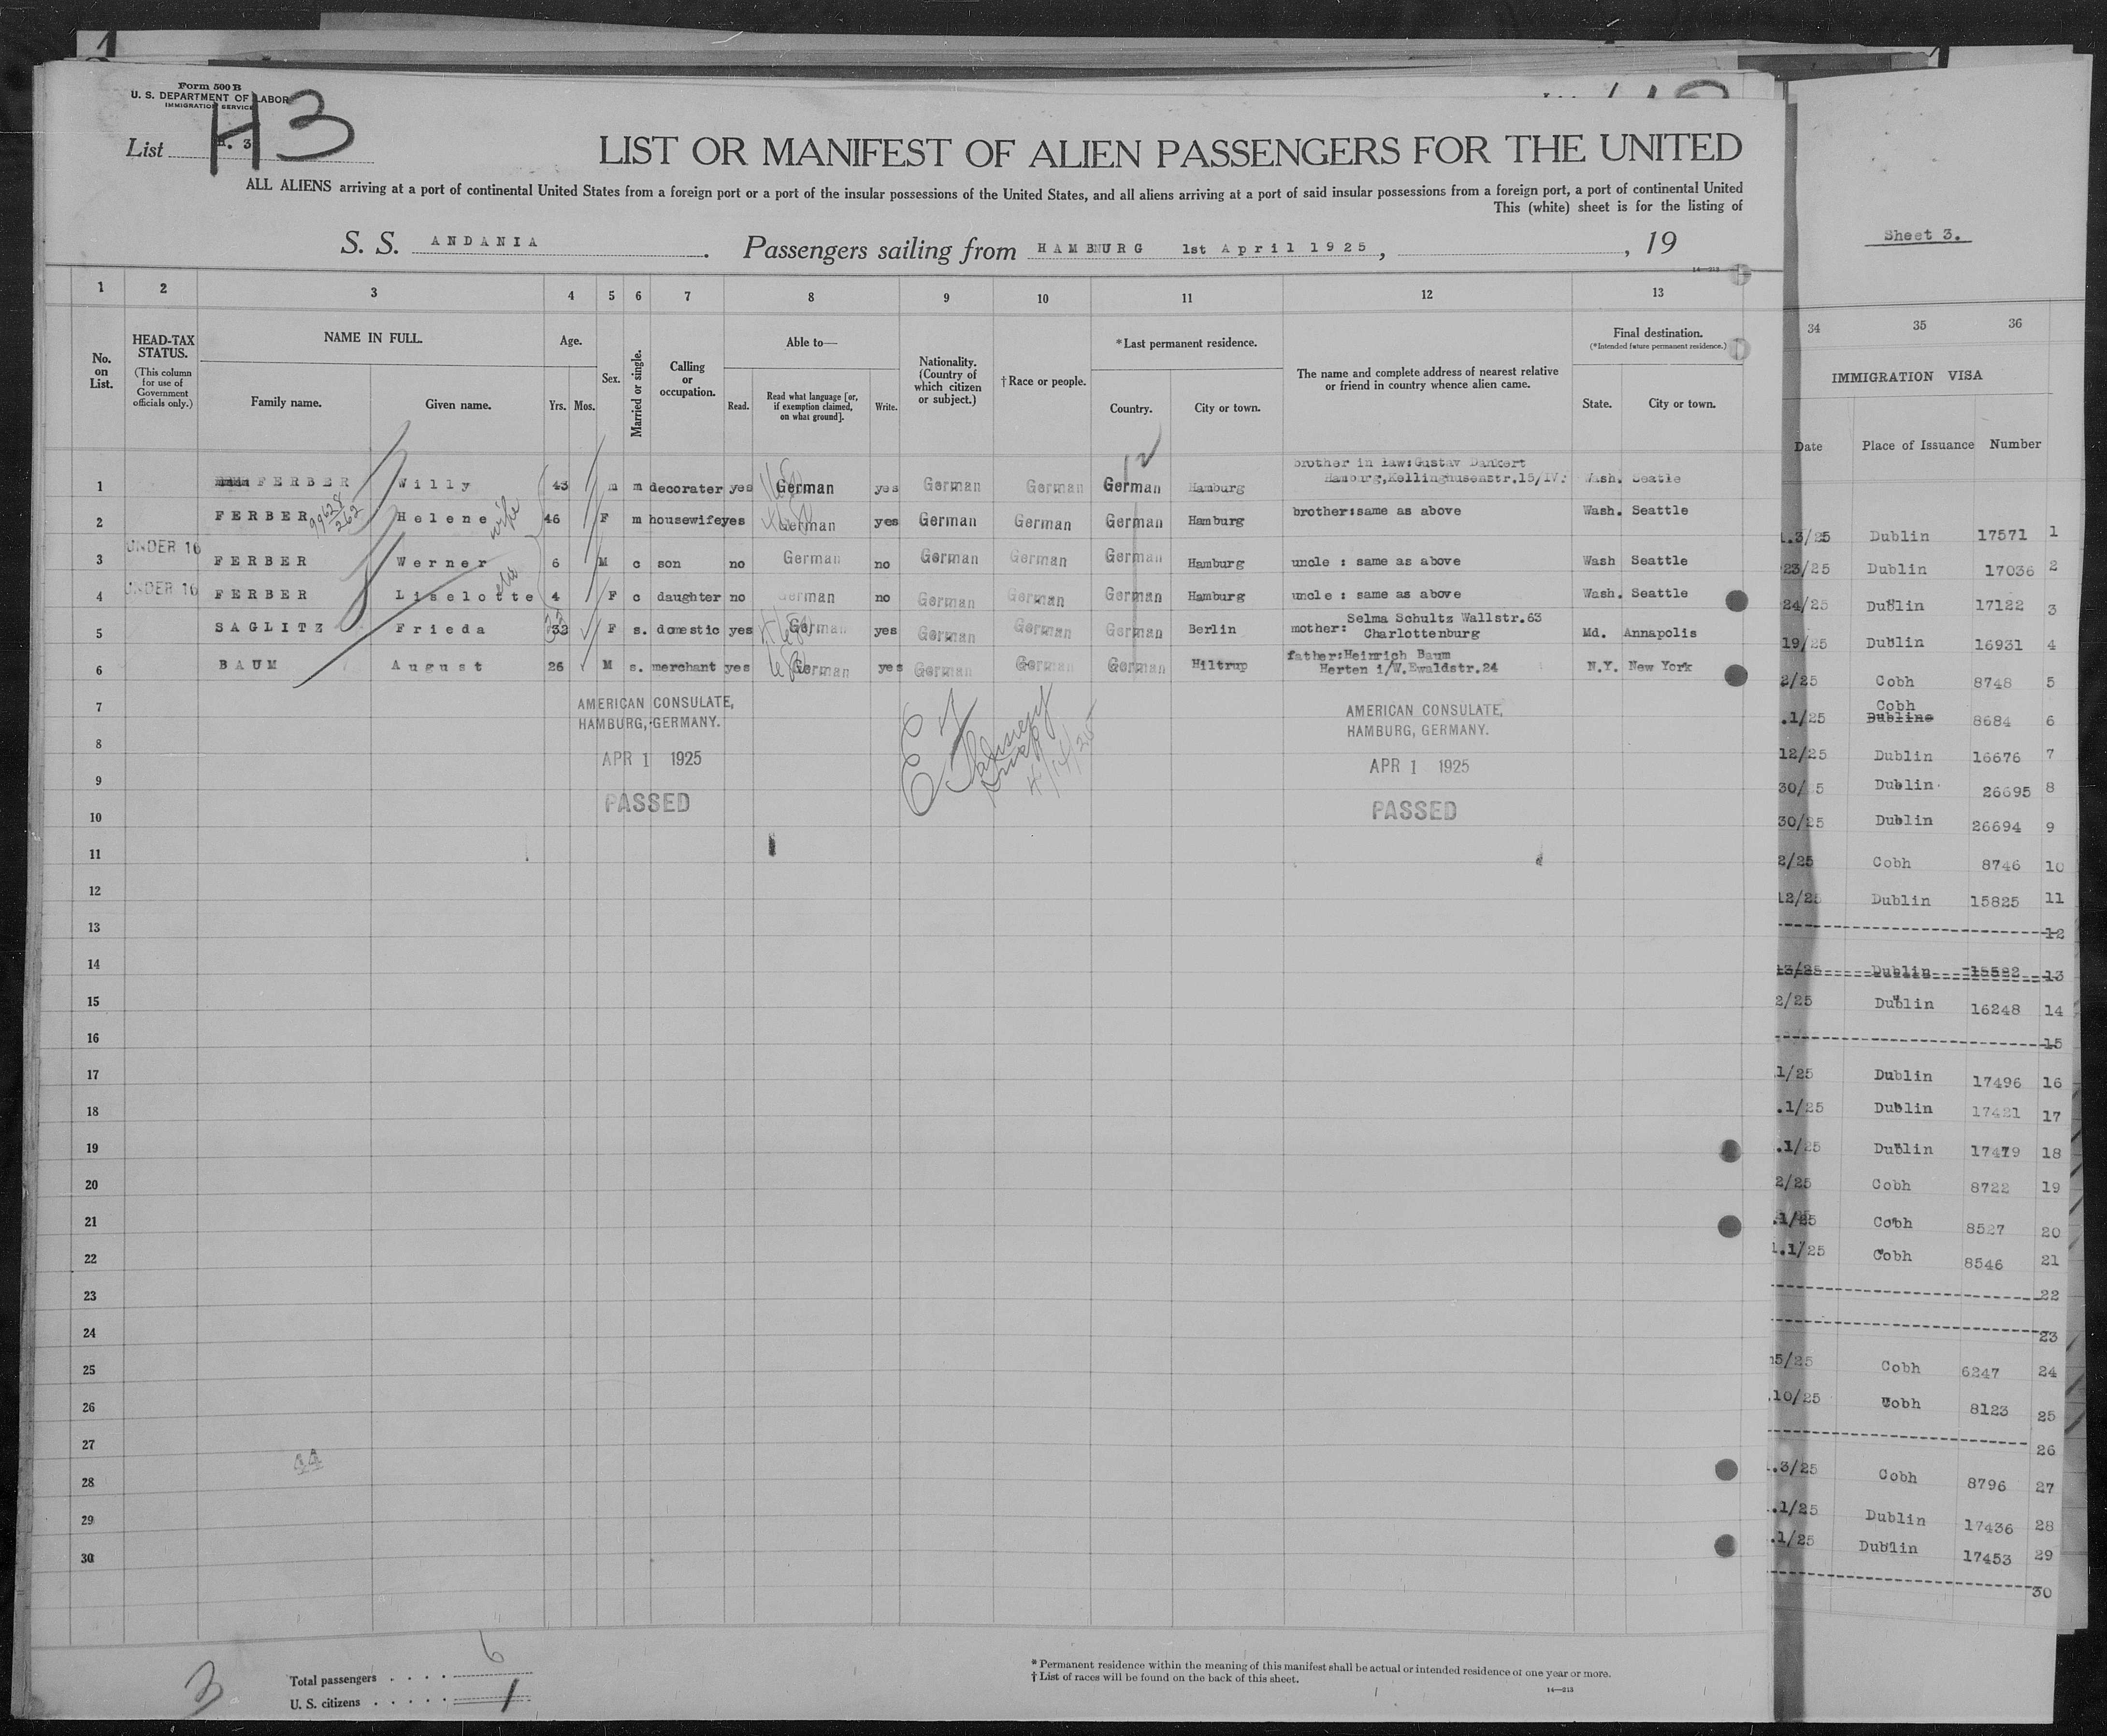 Form 500 B
U. S. DEPARTMENT OF LABOR
IMMIGRATION SERVICE
H3
List H. 3
LIST OR MANIFEST OF ALIEN PASSENGERS FOR THE UNITED
ALL ALIENS arriving at a port of continental United States from a foreign port or a port of the insular possessions of the United States, and all aliens arriving at a port of said insular possessions from a foreign port, a port of continental United
This (white) sheet is for the listing of
S. S. ANDANIA. Passengers sailing from HAMBURG 1st April 1925, , 19
14—213
1 2 3 4 5 6 7 8 9 10 11 12 13
No. on List.
HEAD-TAX STATUS.
(This column for use of Government officials only.)
NAME IN FULL.
Family name. Given name.
Age.
Yrs. Mos.
Sex.
Married or single.
Calling or occupation.
Able to—
Read. Read what language [or, if exemption claimed, on what ground]. Write.
Nationality. (Country of which citizen or subject.)
†Race or people.
*Last permanent residence.
Country. City or town.
The name and complete address of nearest relative or friend in country whence alien came.
Final destination.
(*Intended future permanent residence.)
State. City or town.
1 FERBER Willy 43 m m decorater yes German yes German German German Hamburg brother in law:Gustav Dankert
Hamburg,Kellinghusenstr.15/IV: Wash. Seatle
2 FERBER Helene wife 46 F m housewife yes German yes German German German Hamburg brother:same as above Wash. Seattle
99628
262
3 UNDER 16 FERBER Werner 6 M c son no German no German German German Hamburg uncle : same as above Wash Seattle
4 UNDER 16 FERBER Liselotte 4 F c daughter no German no German German German Hamburg uncle : same as above Wash. Seattle
5 SAGLITZ Frieda 32 F s. domestic yes German yes German German German Berlin mother: Selma Schultz Wallstr.63
Charlottenburg Md. Annapolis
6 BAUM August 26 M s. merchant yes German yes German German German Hiltrup father:Heinrich Baum
Herten i/W.Ewaldstr.24 N.Y. New York
7
8
9
10
11
12
13
14
15
16
17
18
19
20
21
22
23
24
25
26
27
28
29
30
AMERICAN CONSULATE,
HAMBURG, GERMANY.
APR 1 1925
PASSED
4/14/25
AMERICAN CONSULATE,
HAMBURG, GERMANY.
APR 1 1925
PASSED
44
3
Total passengers . . . . 6
U. S. citizens . . . . . 1
* Permanent residence within the meaning of this manifest shall be actual or intended residence of one year or more.
† List of races will be found on the back of this sheet.
14—213
Sheet 3.
34 35 36
IMMIGRATION VISA
Date Place of Issuance Number
.3/25 Dublin 17571 1
23/25 Dublin 17036 2
24/25 Dublin 17122 3
19/25 Dublin 16931 4
2/25 Cobh 8748 5
.1/25 Cobh
Dubline 8684 6
12/25 Dublin 16676 7
30/25 Dublin 26695 8
30/25 Dublin 26694 9
2/25 Cobh 8746 10
12/25 Dublin 15825 11
12
13/25 Dublin 15522 13
2/25 Dublin 16248 14
15
1/25 Dublin 17496 16
.1/25 Dublin 17421 17
.1/25 Dublin 17479 18
2/25 Cobh 8722 19
.1/25 Cobh 8527 20
1.1/25 Cobh 8546 21
22
23
5/25 Cobh 6247 24
.10/25 Cobh 8123 25
26
.3/25 Cobh 8796 27
.1/25 Dublin 17436 28
.1/25 Dublin 17453 29
30